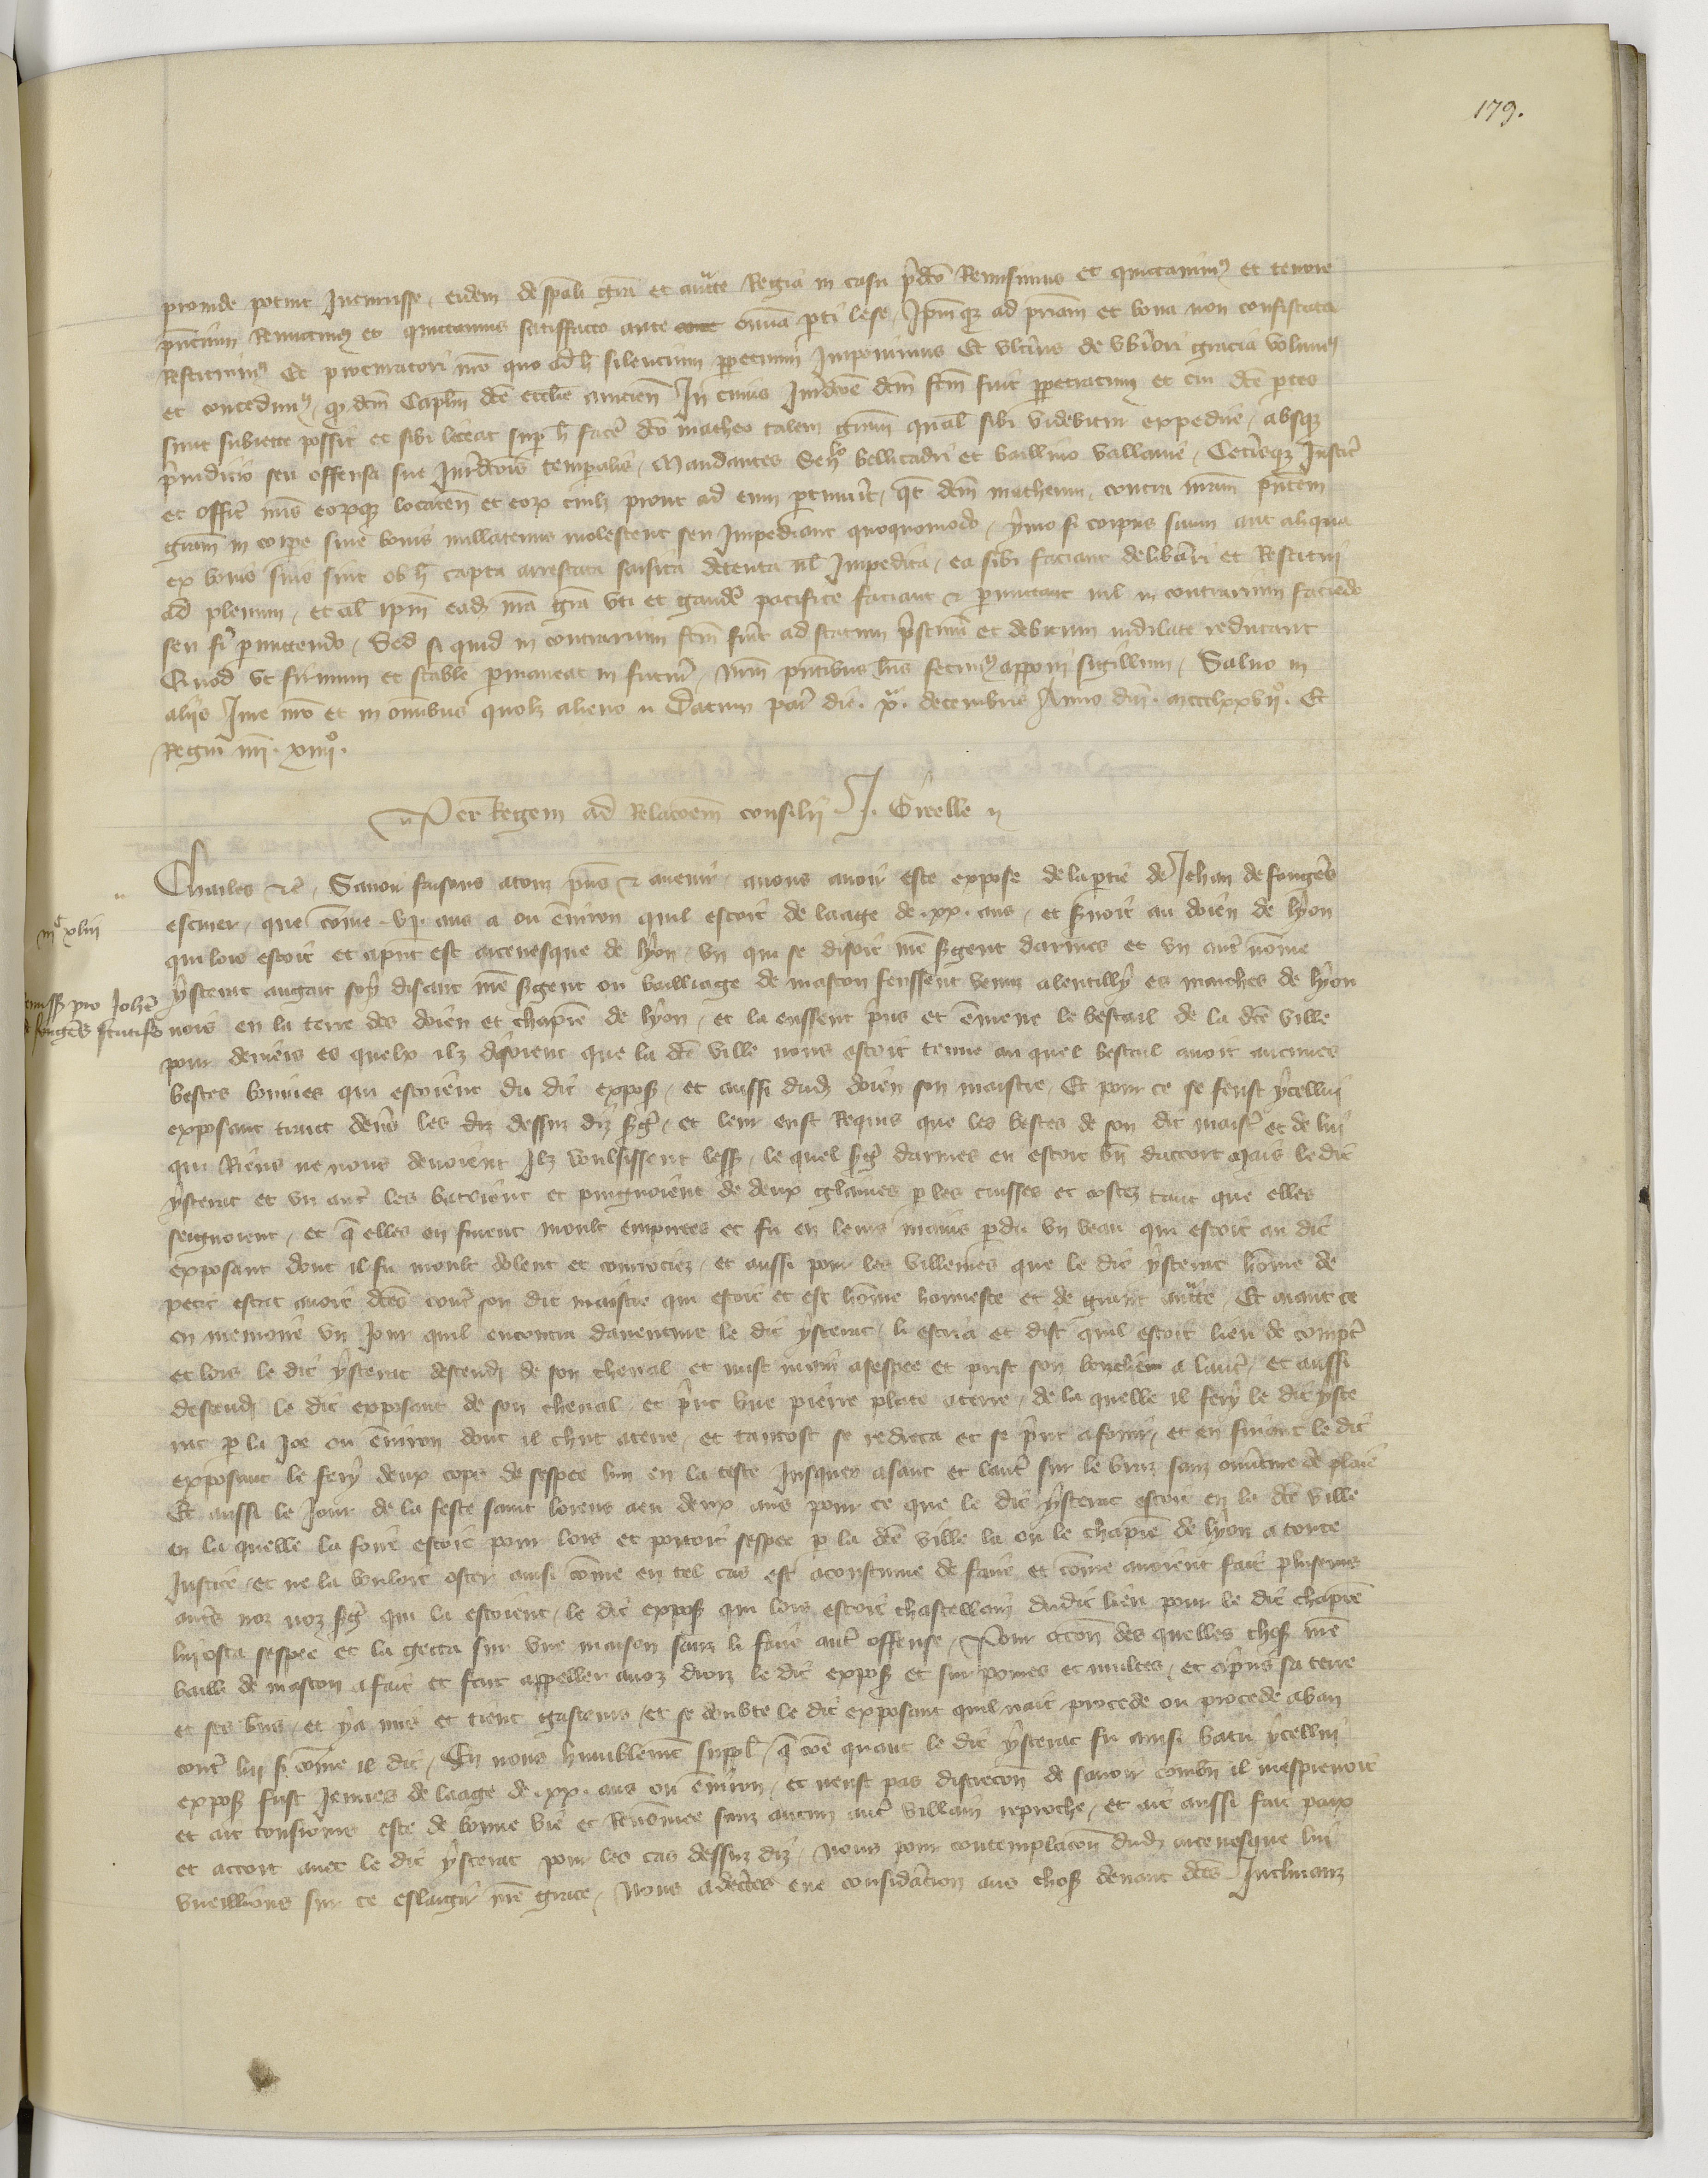 179.
proinde potuit Incurrisse, eidem de spāli grā et aucte Regia in casu p̄dco Remisimus et quictavimꝰ et tenore
pn̄cium Remictimꝰ et quictamus satisffacto ante omīa p̄ti lese, Ip̄mqꝫ ad p̄riam et bona non confiscata
Restituimꝰ Et procuratori nr̄o quo ad h̄ silencium p̄petuum Imponimus Et ult̄ius de ub̄iori gracia volumꝰ
et concedimꝰ, qꝫ dcm̄ Capl̄m dc̄e eccl̄ie In cuius Iurid̄coe dcm̄ fcm̄ fuit p̄petratum et cui dc̄e p̄tes
sunt subiecte possit et sibi liceat sup̄ h̄ facē dco matheo talem grām qual̄ sibi videbitur expedire, absqꝫ
p̄iudicio seu offensa sue Iurid̄cois temporalis, Mandantes Sen̄ bellicadri et baillivo vallavie, Cet̄isqꝫ Iustic̄
et offic̄ nr̄is eorꝫqꝫ locaten̄ et eorꝫ cuil̄ prout ad eum p̄tinuit̄, qt̄ dcm̄ matheum, contra nr̄am pn̄tem
grām in corpe sive bonis nullatenus molestent seu Impediant quoquomodo, ymo si corpus suum aut aliqua
ex bonis suis sint ob h̄ capta arrestata saisita detenta ul̄ Impedita, ea sibi faciant delib̄ari et Restitui
ad plenum, et al̄ ip̄m ead nr̄a grā uti et gaudē pacifice faciant et p̄mictant nil in contrarium faciendo
seu fi p̄mittendo, Sed si quid in contrarium fcm̄ fuit̄ ad statum p̄stinū et debitum indilate reducant
Quod ut firmum et stabile p̄maneat in futur̄, nr̄m pn̄tibus lr̄is fecimꝰ apponi sigillum, Salvo in
aliis Iure nr̄o et in omībus quolꝫ alieno Datum par̄ die .xa. decembris Anno dn̄i. mccclxxviio. Et
Regni nr̄i .xiiiio.
Per Regem ad Relacoem̄ consilii J. Grēelle
Charles etc̄, Savoir faisons atouz pn̄s et avenir, anous avoir este expose de la p̄tie de Jehan de fouger̄s
escuier, que cōme .vi. ans a ou ēnviron quil estoit de laage de .xx. ans, et s̄voit au doien de lyon
qui lors estoit et ap̄nt est arcevesque de lyon, un qui se disoit nr̄e s̄gent darmes et un aut̄ nōme
ysterat augar soy disant nr̄e s̄gent ou bailliage de mascon feussent venuz alentilly es marches de lyon
nois en la terre des doien et chapit̄e de lyon, et la eussent p̄us et ēmene le bestail de la dc̄e ville
pour deniers es quelx ilz disoient que la dc̄e ville nous estoit tenue au quel bestail avoit aucunes
bestes bouines qui estoient du dit expoſꝫ, et aussi dud doien son maistre, Et pour ce se feust ycellui
exposant trait dev̄s les diz dessuz diz s̄ḡ, et leur eust Requis que les bestes de son dit maist̄ et de lui
qui Riens ne nous devoient Ilz voulsissent lesſꝫ, le quel s̄ḡ darmes en estoit bn̄ daccort Mais le dit
ysterat et un aut̄ les batoient et poingnoient de deux glaives p̄ les cuisses et costez tant que elles
seignoient, et q̄ elles en furent moult empirees et fu en leurs mains p̄du un veau qui estoit au dit
exposant dont il fu moult dolent et courociez, et aussi pour les villenies que le dit ysterat hōme de
petit estat avoit dc̄es cont̄ son dit maistre qui estoit et est hōme honneste et de grant aucte, Et aiant ce
en memoire un Jour quil encontra daventure le dit ysterat, li escria et dist quil estoit lieu de compt̄
et lors le dit ysterat descend de son cheval et mist main asespee et prist son bouclier a laut̄, et aussi
descend le dit exposant de son cheval, et p̄nt une pierre plate aterre, de la quelle il fery le dit yste
rat p̄ la Joe ou ēnviron dont il chut aterre, et tantost se redreca et se p̄nt afouir, et en fuiant le dit
exposant le fery deux cops de sespee lun en la teste Jusques asanc et laut̄ sur le braz sanz ouv̄ture de plaie
Et aussi le Jour de la feste saint lorens aeu deux ans pour ce que le dit ysterat estoit en la dc̄e ville
en la quelle la foire estoit pour lors et portoit sespee p̄ la dc̄e ville la ou le chapit̄e de lyon a toute
Justice, et ne la vouloit oster ainsi cōme en tel cas est acoustume de faire et cōme avoient fait pluseurs
aut̄s noz s̄ḡ qui la estoient, le dit expoſꝫ qui lors estoit chastellain dudit lieu pour le dit chapit̄e
lui osta sespee et la getta sur une maison sanz li faire aut̄ offense, Pour occon̄ des quelles choſꝫ nr̄e
bailli de mascon a fait et fait appeller anoz droiz le dit expoſꝫ et sur poines et multes, et ap̄ns sa terre
et ses bn̄s, et y a mis et tient gasteurs, et se doubte le dit exposant quil nait procede ou procede aban
cont̄ lui si cōme il dit, En nous humblemēt suppl̄, q̄ cōe quant le dit ysterat fu ainsi batu ycellui
expoſꝫ fust Jeunes de laage de .xx. ans ou ēnviron, et neust pas discrecon̄ de savoir combn̄ il mesprenoit
et ait tousiours este de bonne vie et Renōmee sanz aucun aut̄ villain reproche, et ait aussi fait paix
et accort avec le dit ysterat pour les cas dessuz diz, Nous pour contemplacon̄ dud arcevesque lui
vueillions sur ce eslargir nr̄e grace, Nous adec̄tes eue considāration aus choſꝫ devant dc̄es Inclinanz
mc xliii
remissꝫ pro Joh̄e
de fouger̄s scutifo